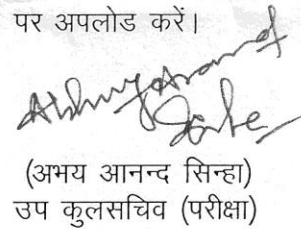 पर अपलोड करें।
(अभय आनन्द सिन्हा)
उप कुलसचिव (परीक्षा)